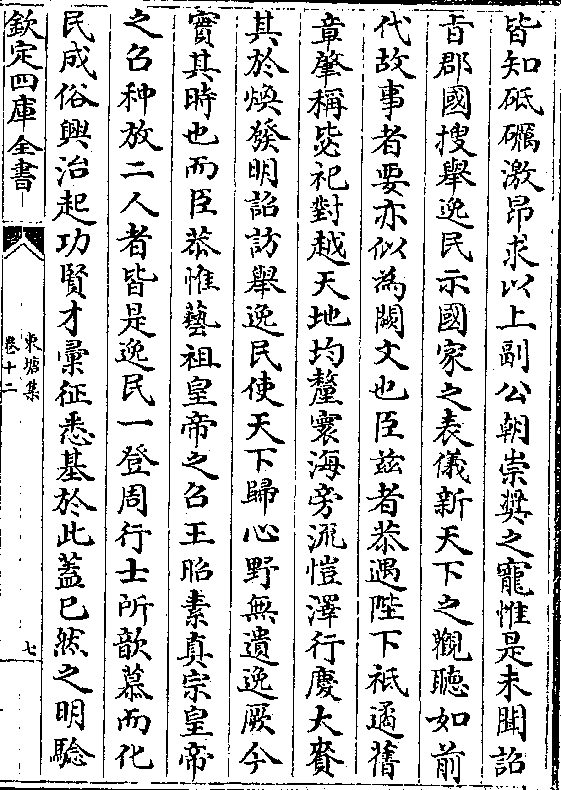 皆知砥礪激昂求以上副公朝崇奬之寵惟是未聞詔
旨郡國搜舉逸民示國家之表儀新天下之觀聽如前
代故事者要亦似為闕文也臣兹者恭遇陛下祗遹舊
章肇稱毖祀對越天地均釐寰海旁流愷澤行慶大賚
其於煥發明詔訪舉逸民使天下歸心野無遺逸厥今
實其時也而臣恭惟藝祖皇帝之召王昭素真宗皇帝
之召种放二人者皆是逸民一登周行士所歆慕而化
民成俗興治起功賢才彙征悉基於此蓋已然之明驗
欽定四庫全書
東塘集
卷十二
七